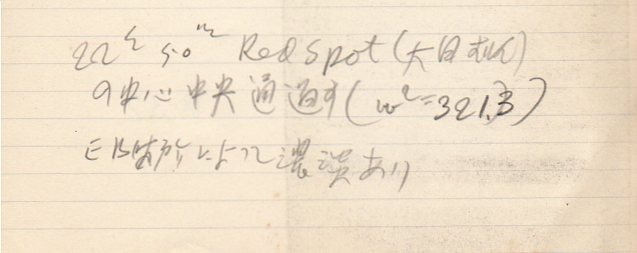 22ʰ 50ᵐ Red Spot (大
の中心中央通過す (ω²=321.3)
EB場所によって濃淡あり